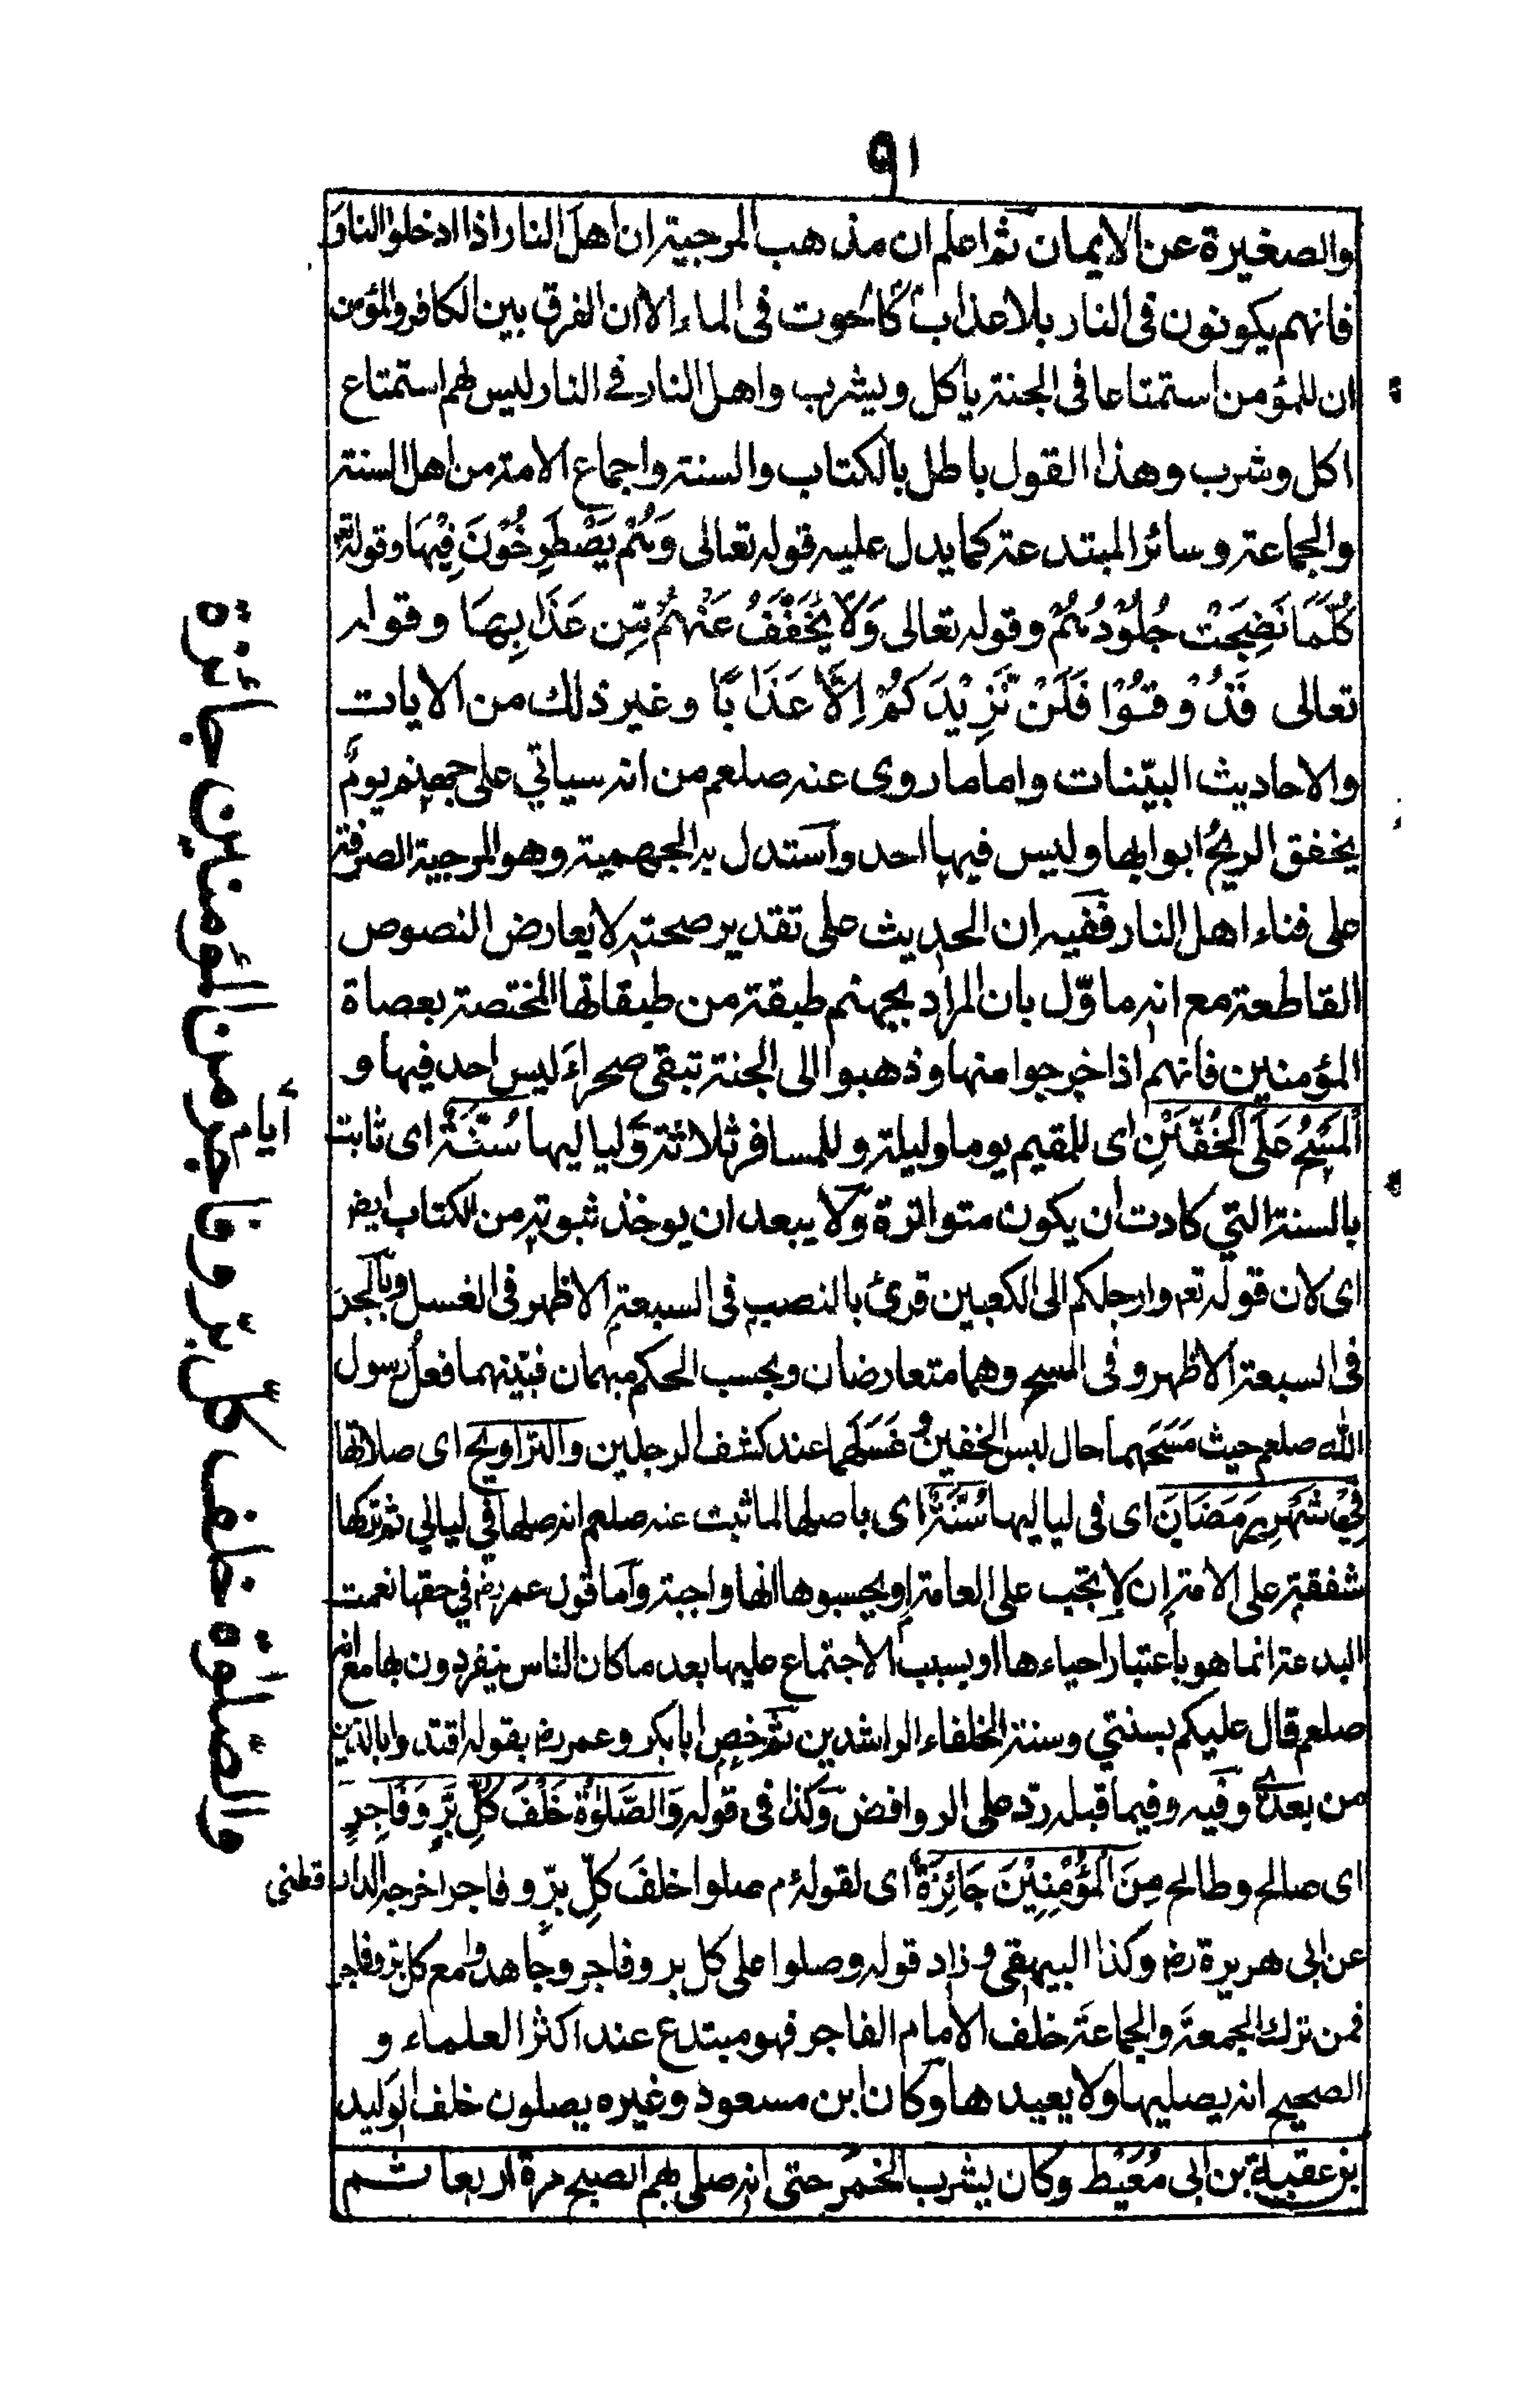 ٩١
والصغيرة عن الايمان ثم اعلم ان مذهب المرجية ان اهل النار اذا ادخلوا النار
فانهم يكونون فى النار بلا عذاب كالحوت فى الماء الا ان الفرق بين الكافر والمؤمن
ان للمؤمن استمتاعا فى الجنة ياكل ويشرب واهل النار فے النار ليس لهم استمتاع
اكل وشرب وهذا القول باطل بالكتاب والسنة واجماع الامة من اهل السنة
والجماعة وسائر المبتدعة كما يدل عليه قوله تعالى وَهُمْ يَصْطَرِخُوْنَ فِيْهَا وقوله تع
كُلَّمَا نَضِجَتْ جُلُوْدُهُمْ وقوله تعالى وَلَا يُخَفَّفُ عَنْهُمْ مِّن عَذَابِهَا وقوله
تعالى فَذُوْقُوْا فَلَنْ نَّزِيْدَكُمْ اِلَّا عَذَابًا وغير ذلك من الايات
والاحاديث البيّنات واما ما روى عنه صلعم من انه سياتي على جهنم يومٌ
يخفق الريحُ ابوابها وليس فيها احد واستدل به الجهمية وهو المرجية الصرفة
على فناء اهل النار ففيه ان الحديث على تقدير صحته لا يعارض النصوص
القاطعة مع انه ماوّل بان المراد بجهنم طبقة من طبقاتها المختصة بعصاة
المؤمنين فانهم اذا خرجوا منها وذهبوا الى الجنة تبقى صحراءَ ليس احد فيها و
الْمَسْحُ عَلَى الْخُفَّيْنِ اى للمقيم يوما وليلة وللمسافر ثلاثة ولياليها سُنَّةٌ اى ثابت
أيام
بالسنة التي كادت ان يكون متواترة ولا يبعد ان يوخذ ثبوته من الكتاب ايض
اى لان قوله تع وارجلكم الى الكعبين قرئ بالنصب فى السبعة الاظهر فى الغسل وبالجر
فى السبعة الاظهر وفى المسح وهما متعارضان وبحسب الحكم مبهمان فبيّنهما فعلُ رسول
الله صلعم حيث مَسَحَهما حال لبس الخفين وغَسَلَهما عند كشف الرجلين والتراويح اى صلاتها
فِيْ شَهْرِ رَمَضَانَ اى فى لياليها سُنَّةٌ اى باصلها لما ثبت عنه صلعم انه صلها في ليالي ثم تركها
شفقة على الامة ان لا تجب على العامة او يحسبوها انها واجبة واما قول عمر رض في حقها نعمت
البدعة انما هو باعتبار احياءها او بسبب الاجتماع عليها بعد ما كان الناس ينفردون بها مع انه
صلعم قال عليكم بسنتي وسنة الخلفاء الراشدين ثم خص ابا بكر وعمر رض بقوله اقتدوا بالذين
من بعدى وفيه وفيما قبله ردّ على الروافض وكذا فى قوله وَالصَّلوٰةُ خَلْفَ كُلِّ بَرٍّ وَفَاجِرٍ
اى صالح وطالح مِنَ الْمُؤْمِنِيْنَ جَائِزَةٌ اى لقوله م صلوا خلفَ كلِّ برٍّ وفاجر اخرجه الدار قطنى
عن ابى هريرة رض وكذا البيهقى وزاد قوله وصلوا على كل بر وفاجر وجاهدوا مع كل بر وفاجر
فمن ترك الجمعة والجماعة خلف الامام الفاجر فهو مبتدع عند اكثر العلماء و
الصحيح انه يصليها ولا يعيدها وكان ابن مسعود وغيره يصلون خلف الوليد
بن عقبة بن ابى مُعَيْط وكان يشرب الخمر حتى انه صلى بهم الصبح مرة اربعا ثم
والصّلوٰة خلف كلّ برّ وفاجر من المؤمنين جائزة